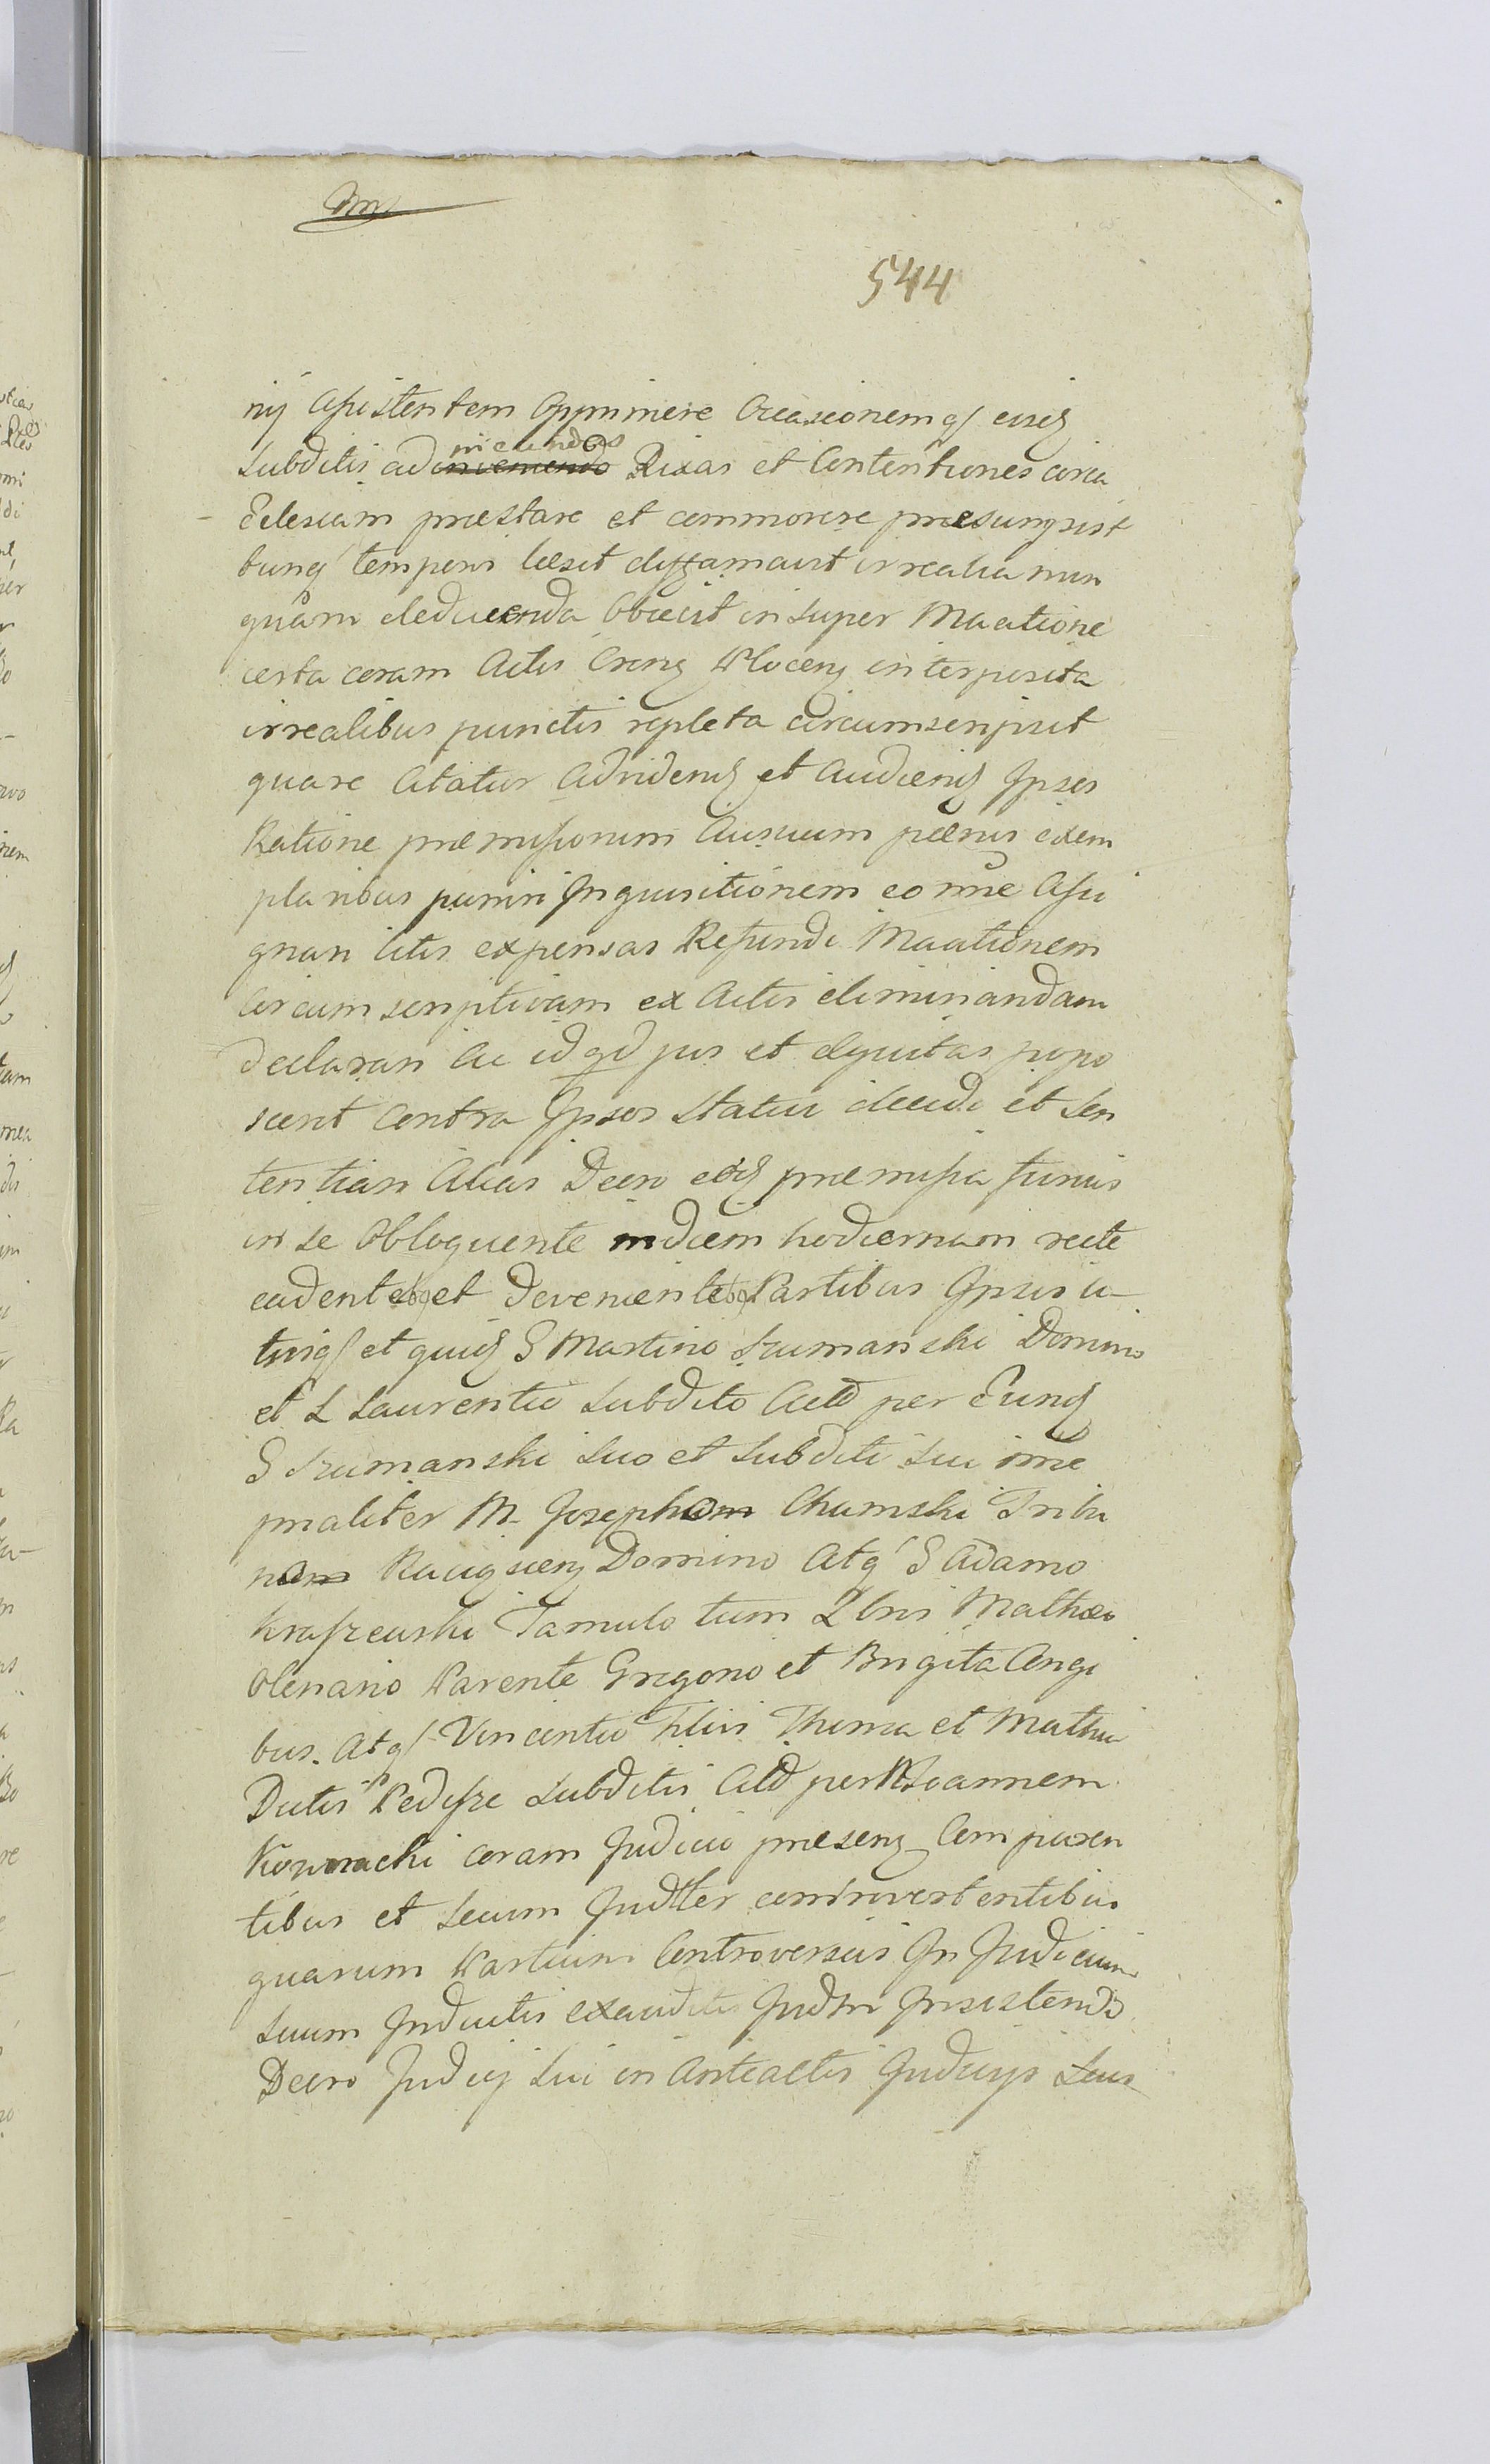 544
nij Assistentem Opprimere Occasionemq eisd
Subditis ad inveniendo ineundas Rixas et Contentiones circa
Eclesiam præstare et commovere præsumpsit
tunq temporis læsit diffamavit irrealia nun
quam deducenda Obiecit insuper Maatione
certa coram Actis Cren Plocen interposita
irrealibus punctis repleta circumscripsit
quare Citatur Advidend et Audiend Ipsos
Ratione præmissorum Ausuum pænis exem
plaribus puniri Inquisitionem eo nne Assi
gnari litis expensas Refundi Maationem
Circumscriptivam ex Actis eliminandam
declarari Ac id qd jus et Equitas popo
scerit Contra Ipsos Statui decidi et Sen
tentiari Alias Decro eod præmissa fusius
in se Obloquente in diem hodiernam recte
cadente et Deveniente Partibus Ipsis u
trisq et quid G Martino Szumanski Domino
et L Laurentio Subdito Actо per Eund
G Szumanski Suo et Subditi Sui nne
prsaliter M. Josepho Chumski Tribu
no Raciąscen Domino Atq G Adamo
Kraszewski Famulo tum Lbris Mathæo
Olenario Parente Gregorio et Brigita Congi
bus Atq Vincentio Filiis Thoma et Mathia
Dictis Pedisze Subditis Citt per M Joannem
Kownacki coram Judicio præsen Comparen
tibus et Secum Judtter controvertentibus
quarum Partium Controversiis In Judicium
Suum Inductis exauditis Judm Insistendo
Decro Judicij Sui in Anteactis Judicijs Suis